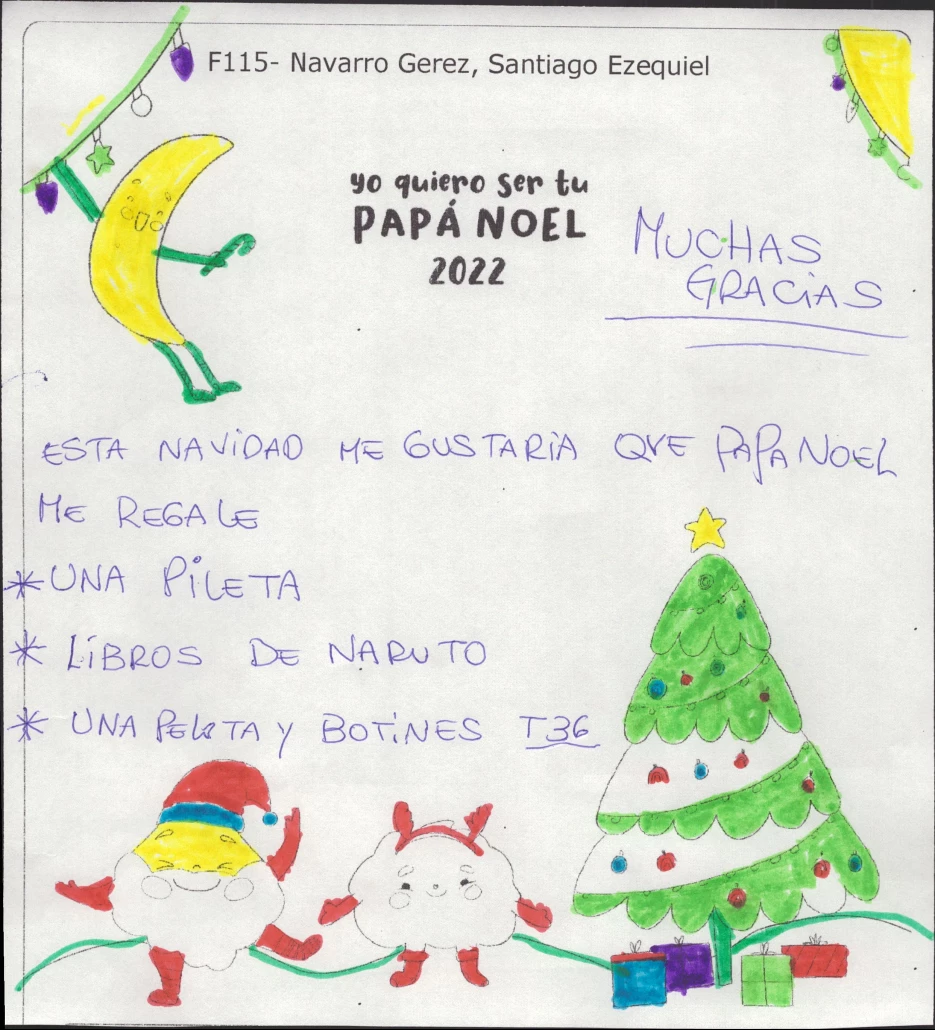 F115- Navarro Gerez, Santiago Ezequiel
yo quiero ser tu
PAPÁ NOEL
2022
MUCHAS
GRACIAS
ESTA NAViDAD ME GUSTARiA QUE PAPA NOEL
ME REGALE
* UNA PiLETA
* LiBROS DE NARUTO
* UNA PELOTA Y BOTiNES T36